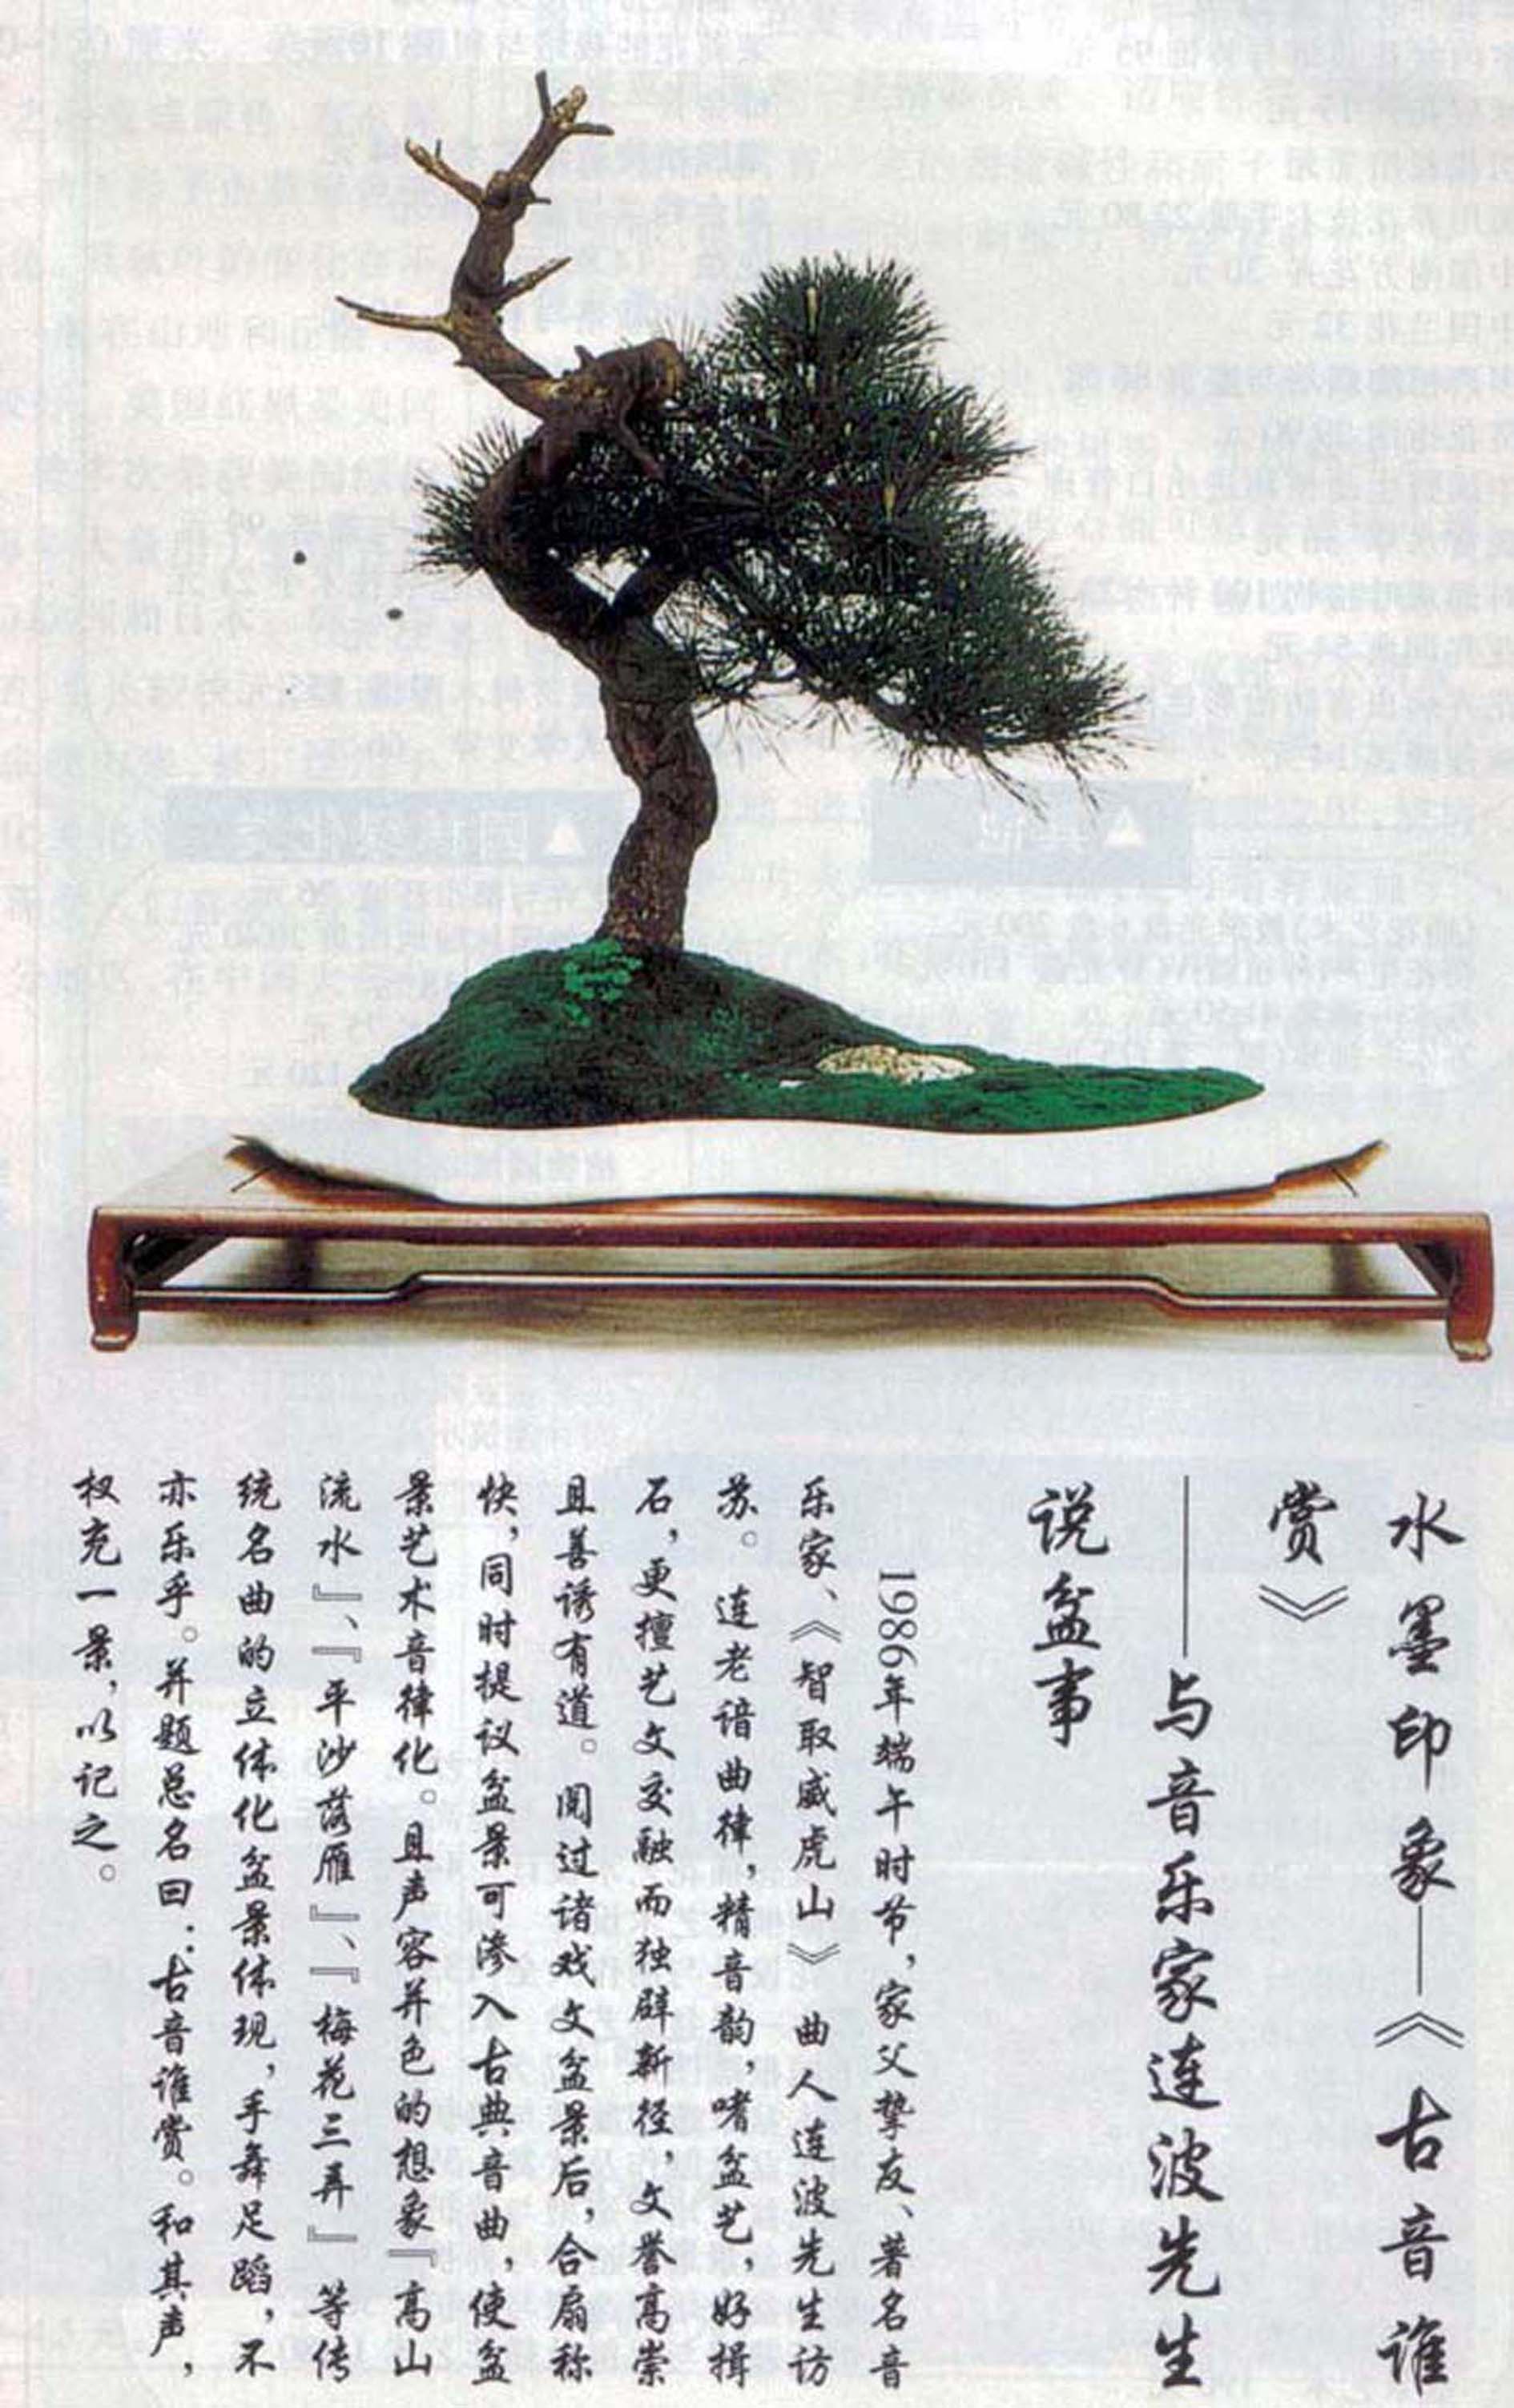 水墨印象——《古音谁
赏》
——与音乐家连波先生
说盆事
1986年端午时节，家父挚友、著名音
乐家、《智取威虎山》曲人连波先生访
苏。连老谙曲律，精音韵，嗜盆艺，好揖
石，更擅艺文交融而独辟新径，文誉高崇
且善诱有道。阅过诸戏文盆景后，合扇称
快，同时提议盆景可渗入古典音曲，使盆
景艺术音律化。且声容并色的想象『高山
流水』、『平沙落雁』、『梅花三弄』等传
统名曲的立体化盆景体现，手舞足蹈，不
亦乐乎。并题总名曰：古音谁赏。和其声，
权充一景，以记之。